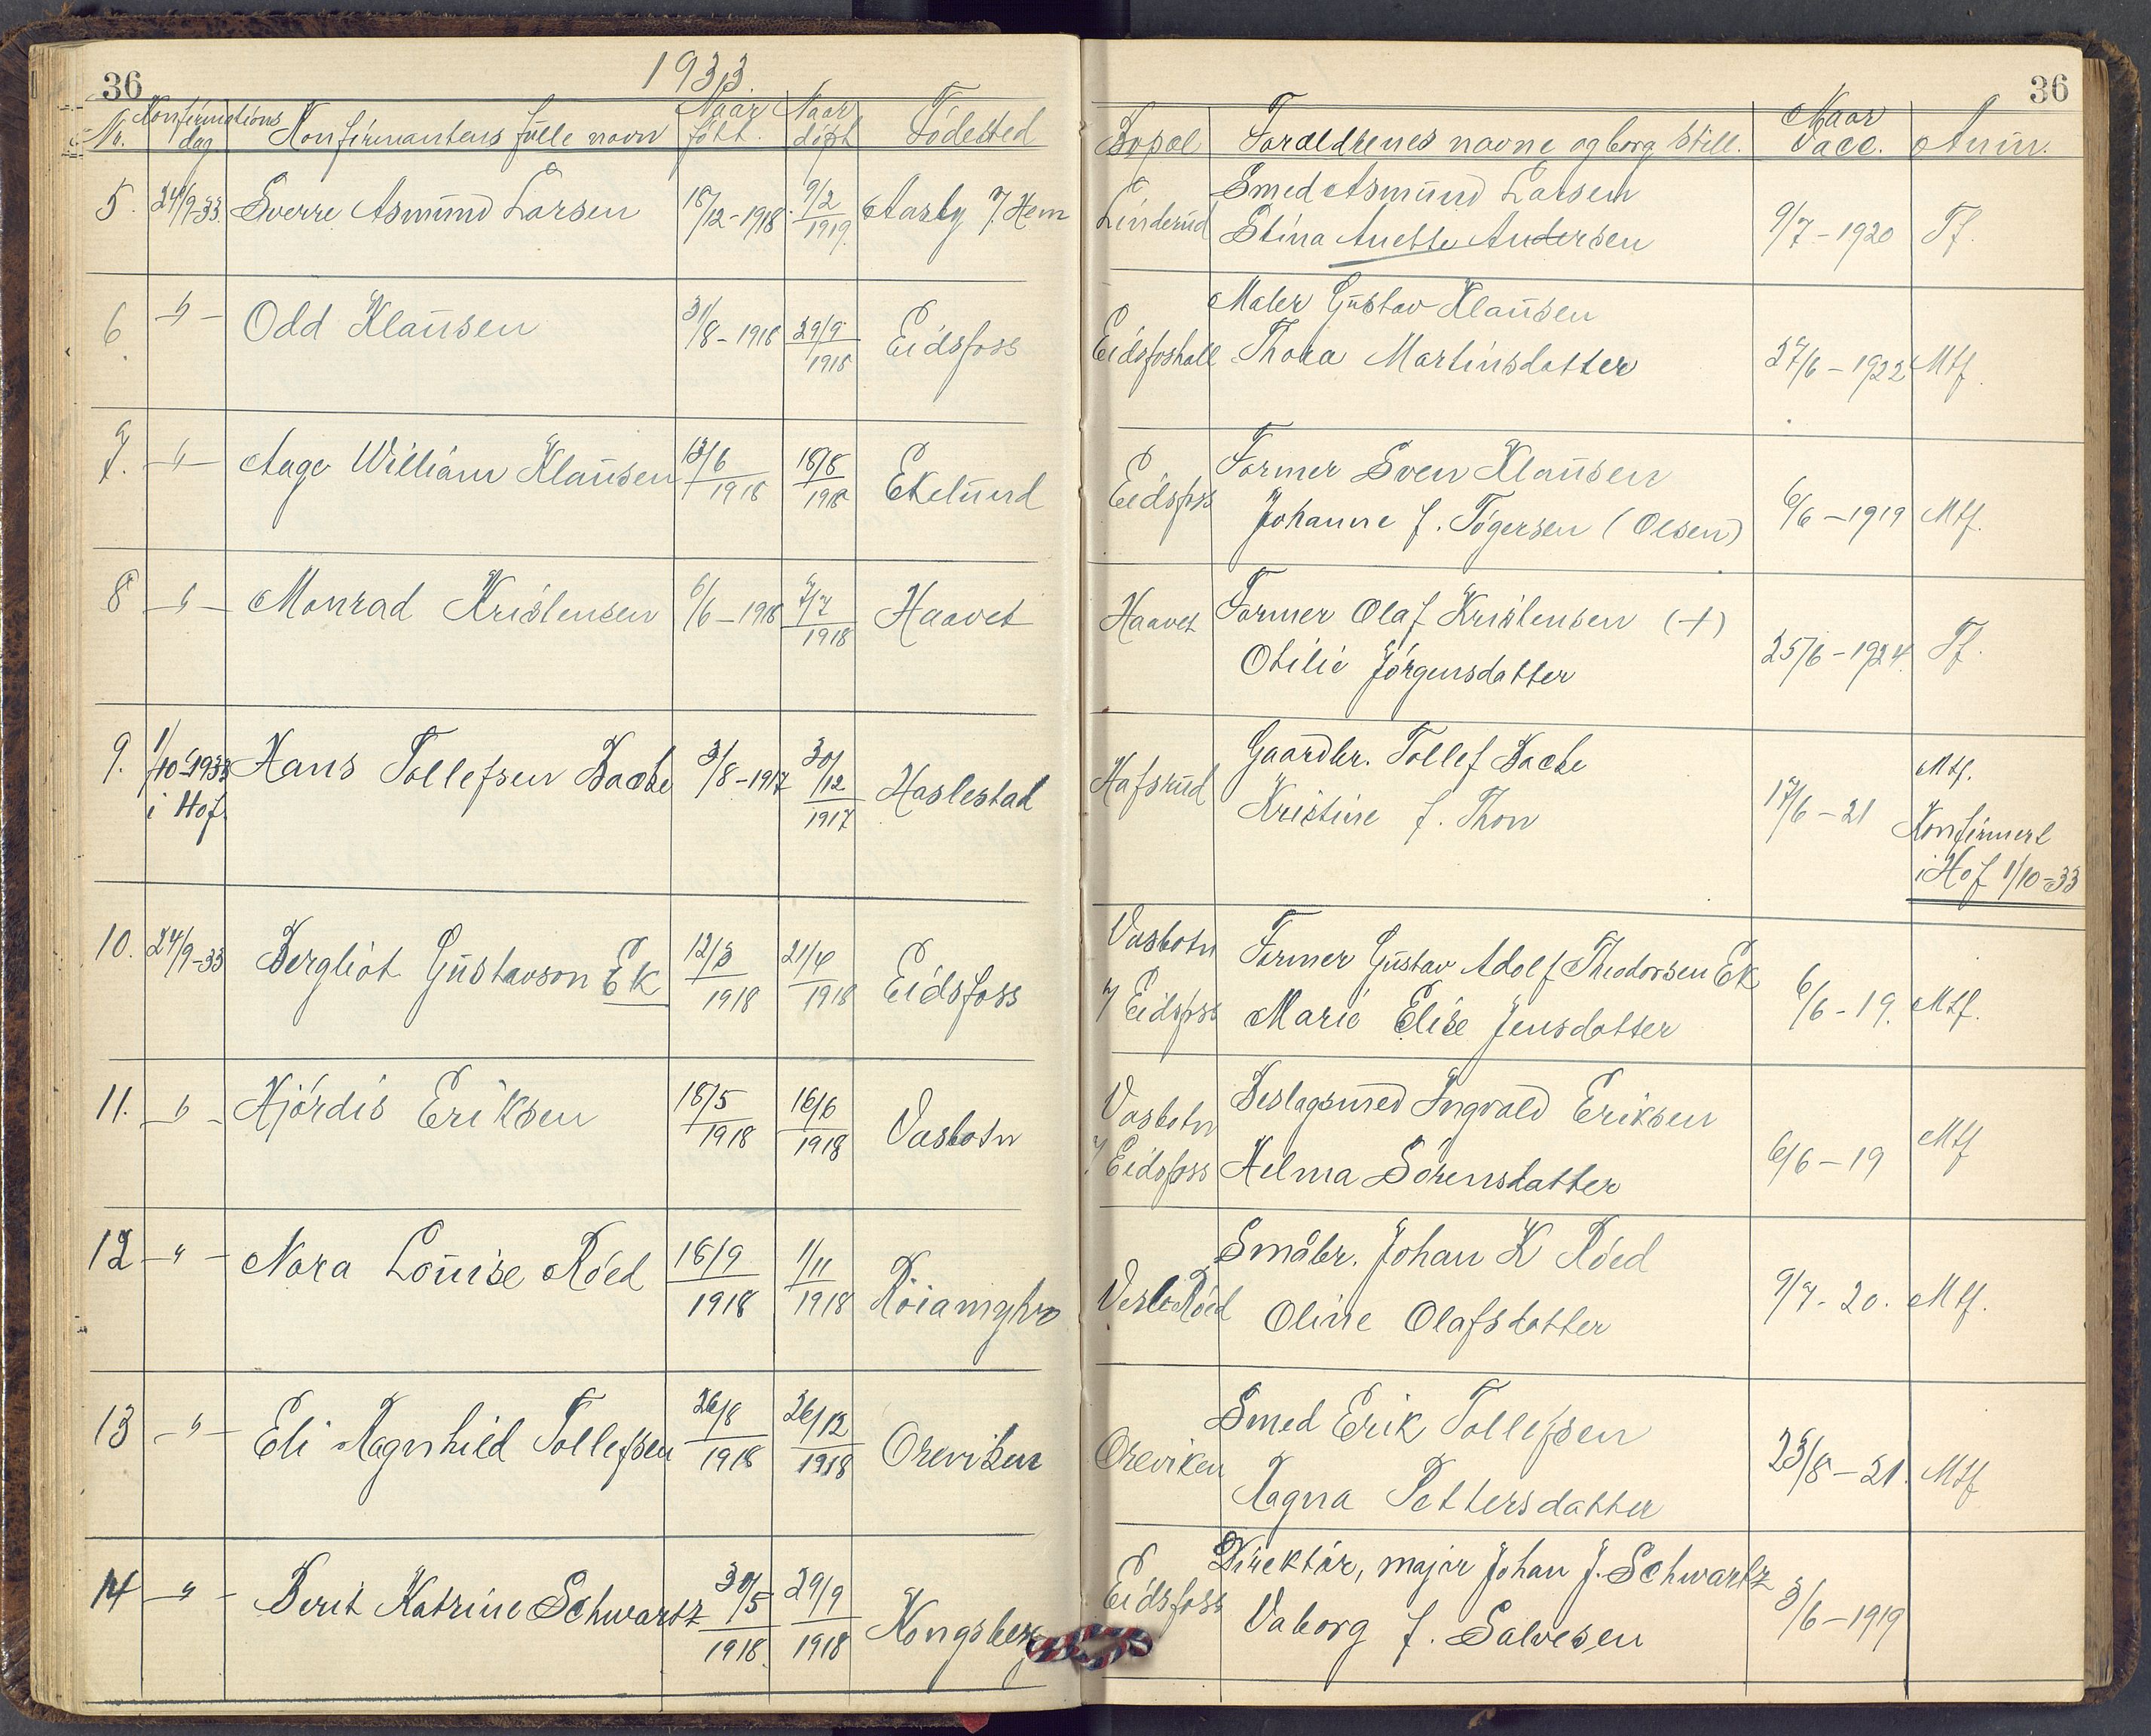 36
1933.
36
Nr. Konfirmations dag. Konfirmantens fulle navn Naar født. Naar døpt Födested Bopæl Forældrenes navne og borg. still. Naar vacc. Anm.
5. 24/9-33. Sverre Asmund Larsen 18/12-1918. 9/2 1919. Aasly Linderud Smed Asmund Larsen 9/7-1920 Tf.
Stina Anette Andersen
6. -"- Odd Klausen 31/8-1918 29/9 1918 Eidsfoss Eidsfoshall Maler Gustav Klausen 27/6-1922 Mtf.
Thora Martinsdatter
7. -"- Aage William Klausen 13/6 1918 18/8 1918 Ekelund Eidsfoss Former Sven Klausen 6/6-1919 Mtf.
Johanne f. Tögersen (Olsen)
8 -"- Monrad Kristensen 6/6-1918 7/7 1918 Haavet Haavet Former Olaf Kristensen (+) 25/6-1924. Tf.
Otilie Jörgensdatter
9. 1/10-1933 i Hof. Hans Tollefsen Bache 3/8-1917 30/12 1917 Haslestad Hafsrud Gaardbr. Tollef Bache 17/6-21 Mtf.
Kristine f. Thon Konfirmert
i Hof 1/10-33
10. 24/9-33 Bergliot Gustavson Ek 12/3 1918 21/4 1918 Eidsfoss Vasbotn Former Gustav Adolf Theodorsen Ek 6/6-19. Mtf.
Eidsfoss Marie Elise Jensdatter
11. -"- Hjördis Eriksen 18/5 1918 16/6 1918 Vasbotn Vasbotn Beslagsmed Ingvald Eriksen 6/6-19 Mtf
Eidsfoss Helma Sörensdatter
12 -"- Nora Louise Röed 18/9 1918 1/11 1918 Vesle Röed Småbr. Johan K Röed 9/7-20. Mtf.
Oline Olafsdatter
13 -"- Eli Ragnhild Tollefsen 26/8 1918 26/12 1918 Oreviken Oreviken Smed Erik Tollefsen 25/8-21. Mtf
Ragna Pettersdatter
14 -"- Berit Katrine Schwartz 30/5 1918. 29/9 1918 Kongsberg Eidsfoss Direktör, major Johan J. Schwartz 3/6-1919
Vaborg f. Salvesen